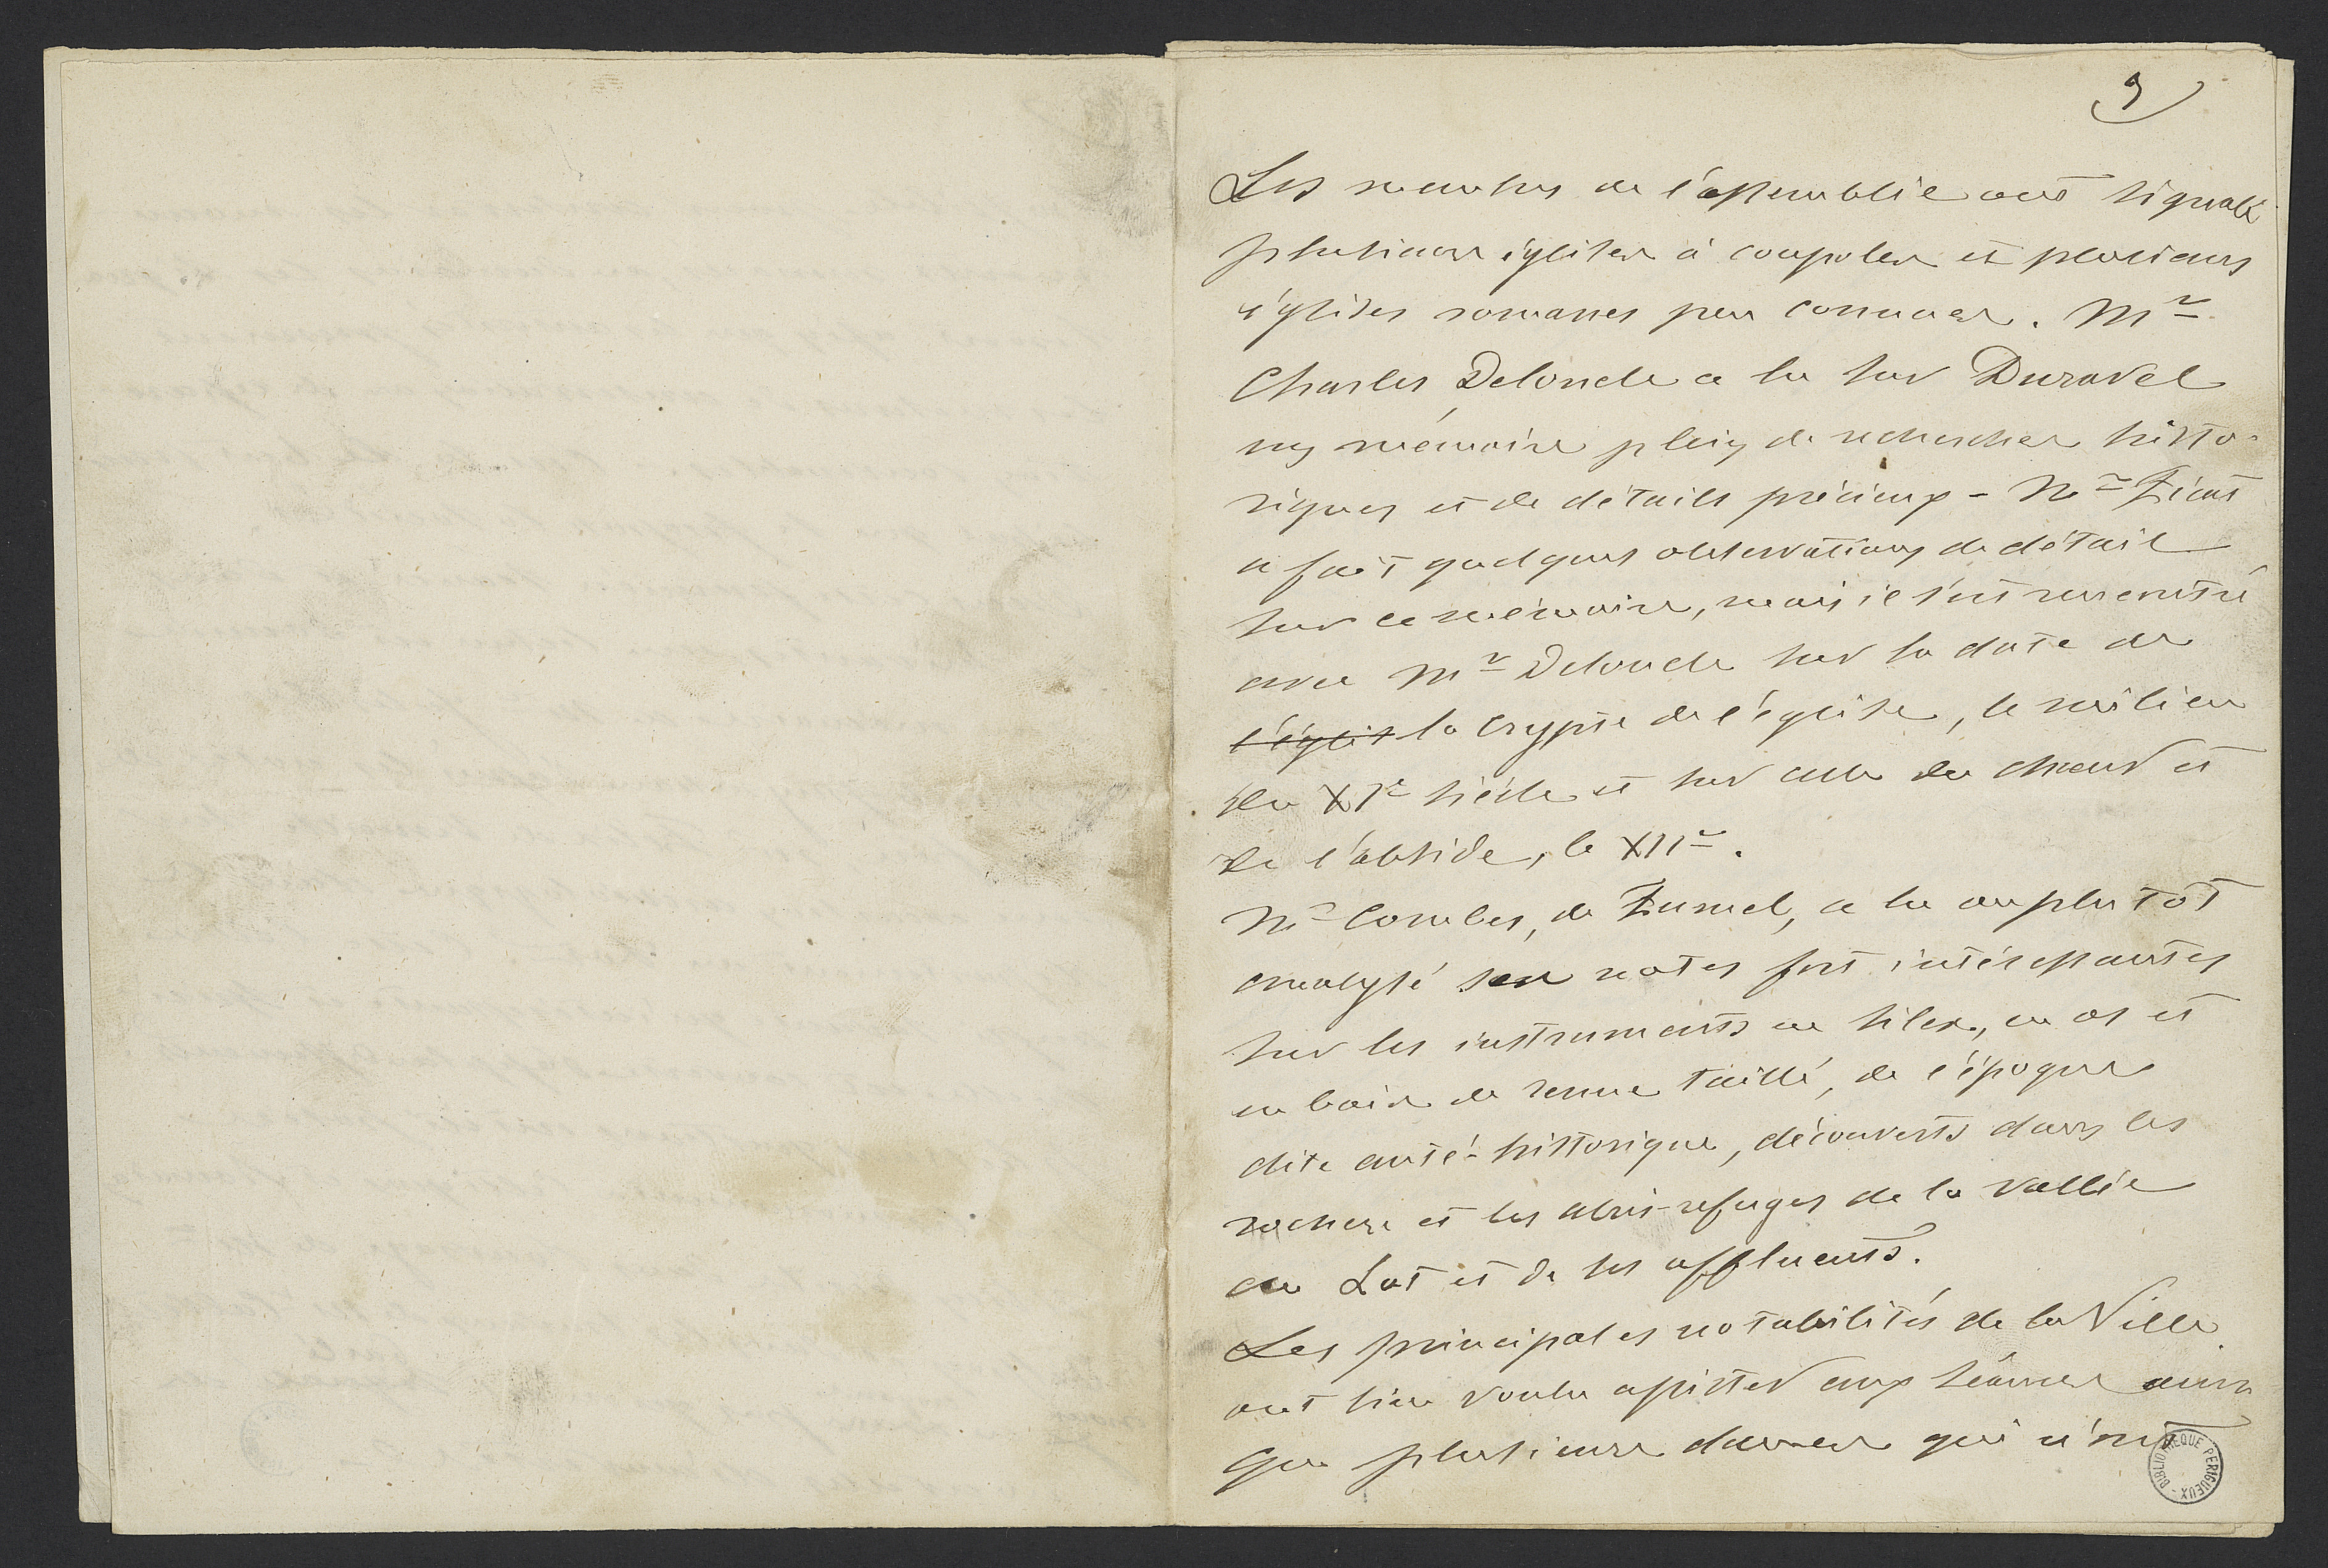 9
Les membres de l'assemblée ont signalé
plusieurs églises à coupoles et plusieurs
églises romanes peu connues. Mr
Charles Deloncle a lu sur Duravel
un mémoire plein de recherches histo-
riques et de détails précieux - Mr
a fait quelques observations de détail
sur ce mémoire, mais il s'est rencontré
avec Mr Deloncle sur la date de
l'églis la crypte de l'église, le milieu
du XIe siècle et sur celle du chœur et
de l'abside, le XIIe.
Mr Combes, de Fumel, a lu ou plutôt
analysé ses notes fort intéressantes
sur les instruments en silex, en os et
en bois de renne taillé, de l'époque
dite anté-historique, découverts dans les
rochers et les abris-refuges de la vallée
du Lot et de ses affluents.
Les principales notabilités de la Ville
ont bien voulu assister aux séances ainsi
que plusieurs dames qui n'ont
BIBLIOTHEQUE PERIGUEUX